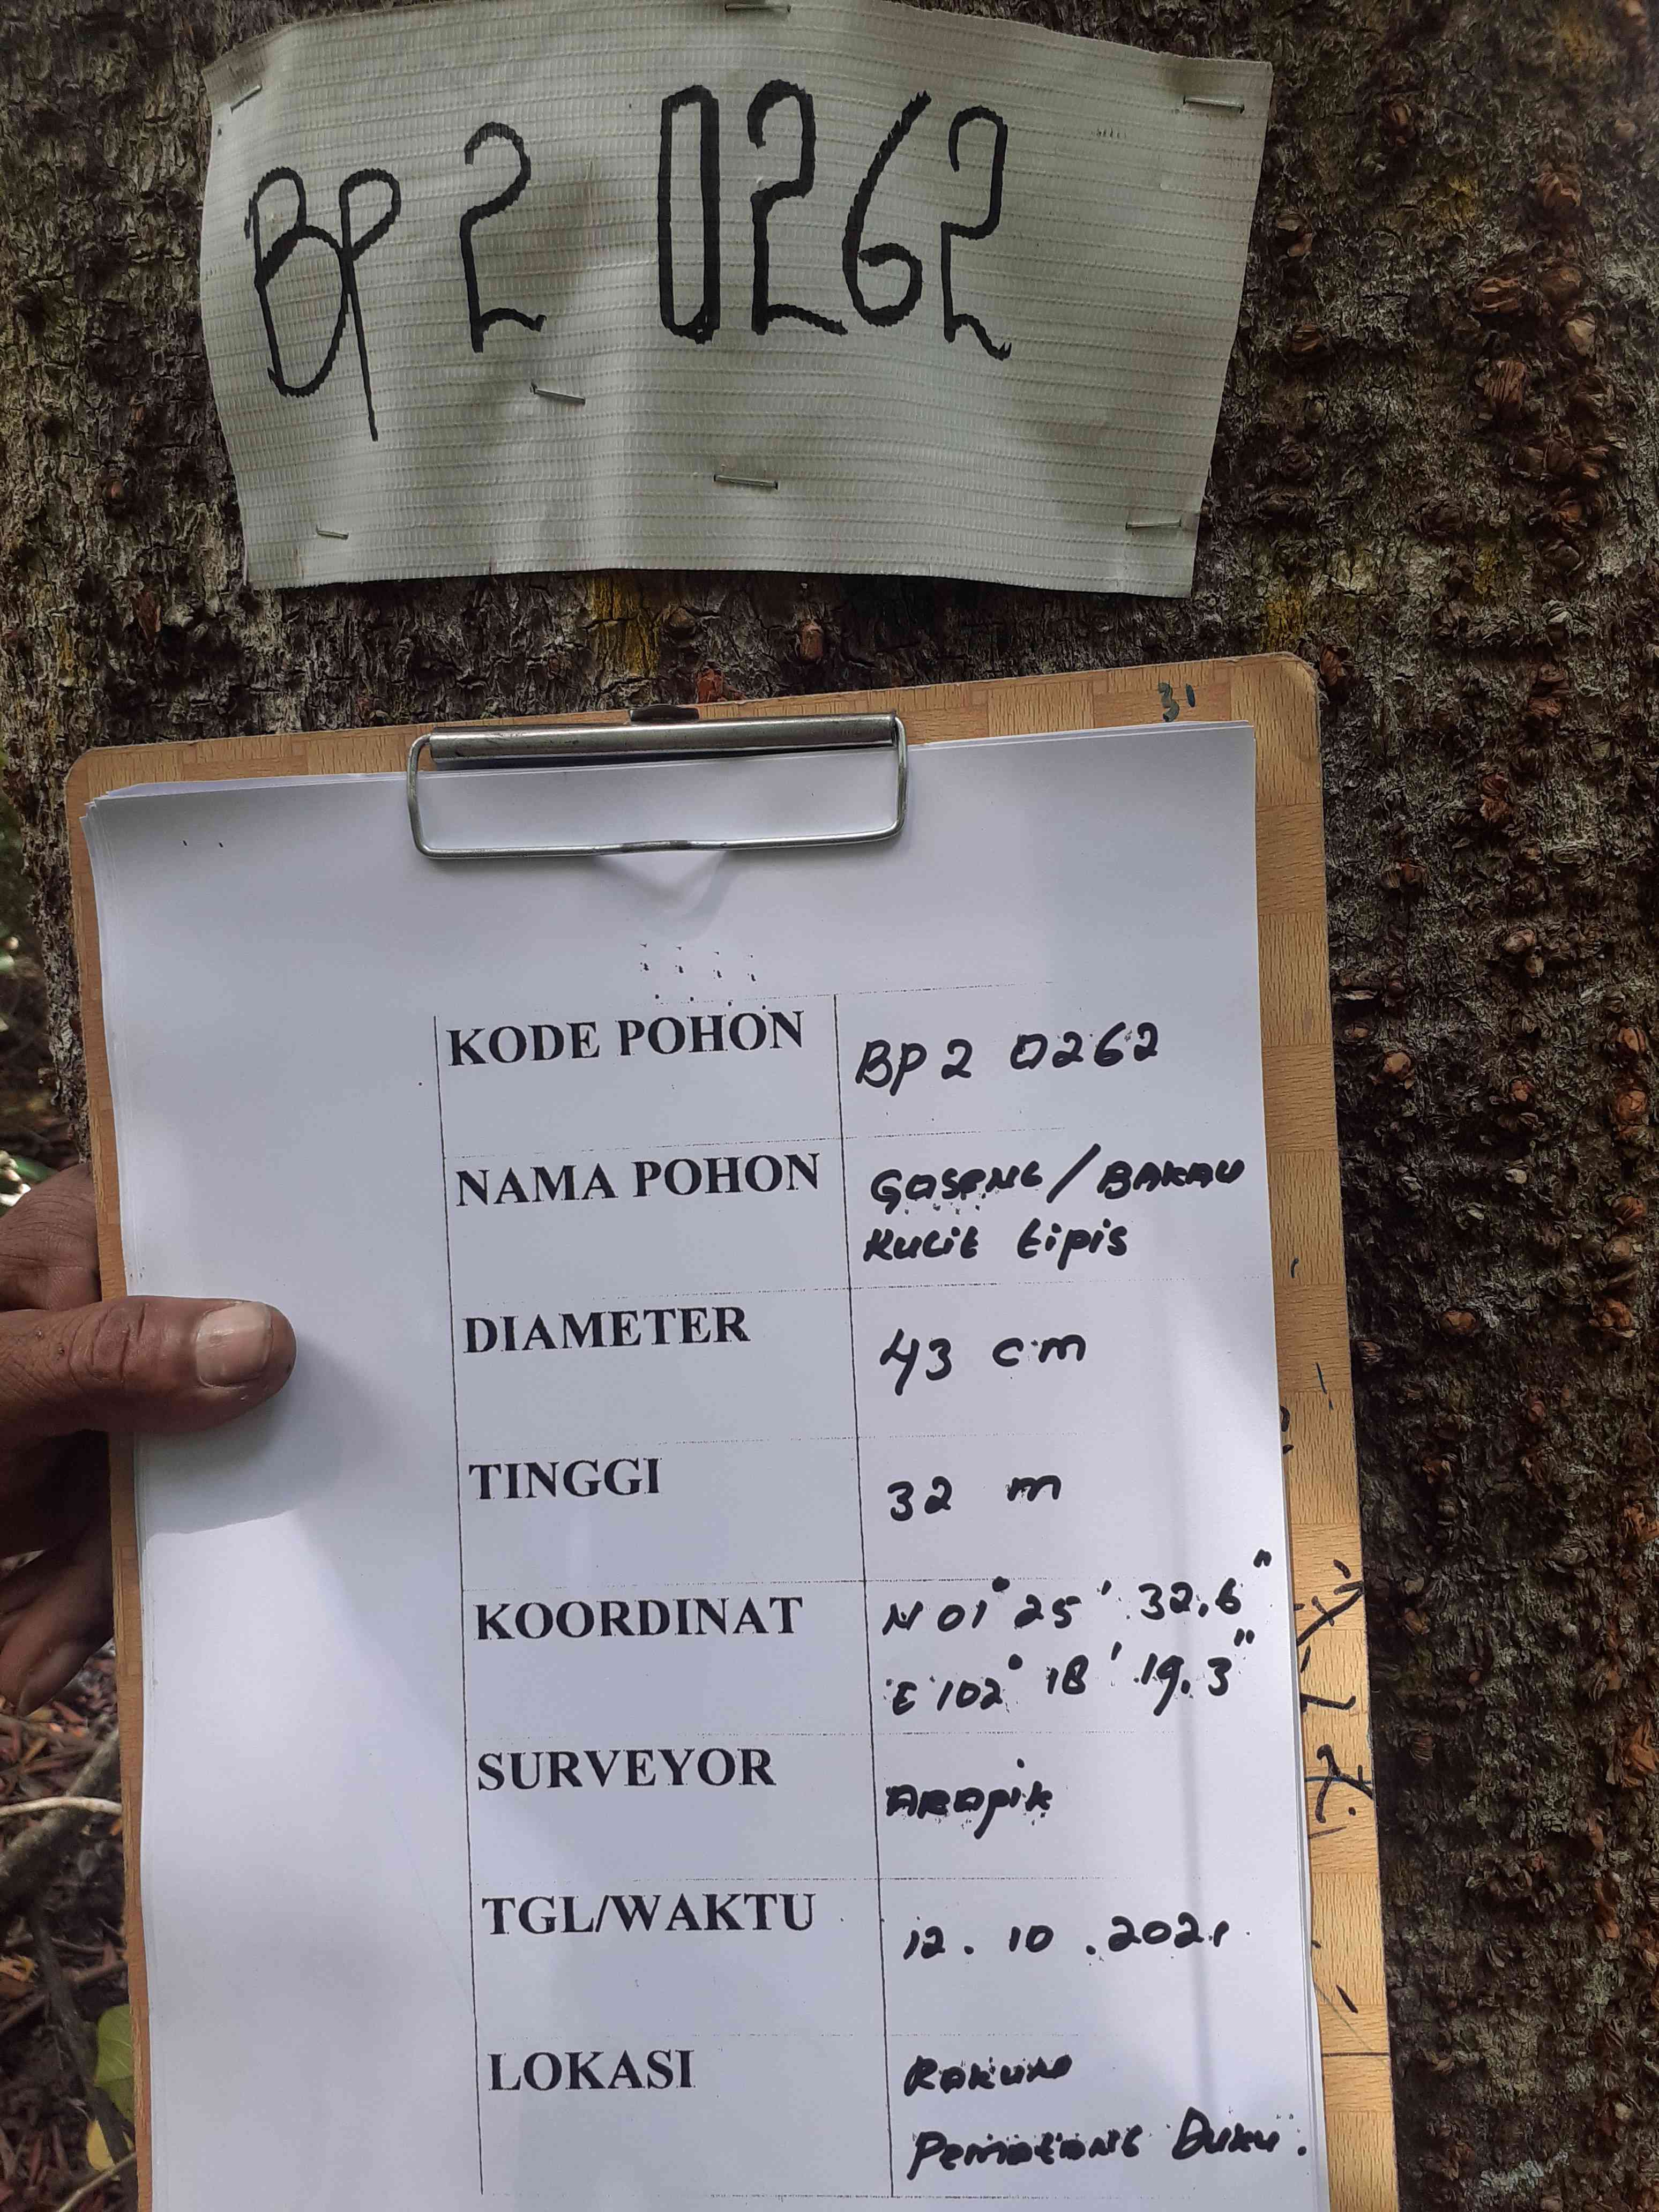 BP 2 0262
31
KODE POHON BP 2 0262
NAMA POHON GOSENG / BAKAU
KuLit tipis
DIAMETER 43 cm
TINGGI 32 m
KOORDINAT N 01° 25' 32,6"
E 102° 18' 19,3"
SURVEYOR ARAPIK
TGL/WAKTU 12 . 10 . 2021
LOKASI
Pematang Duku.